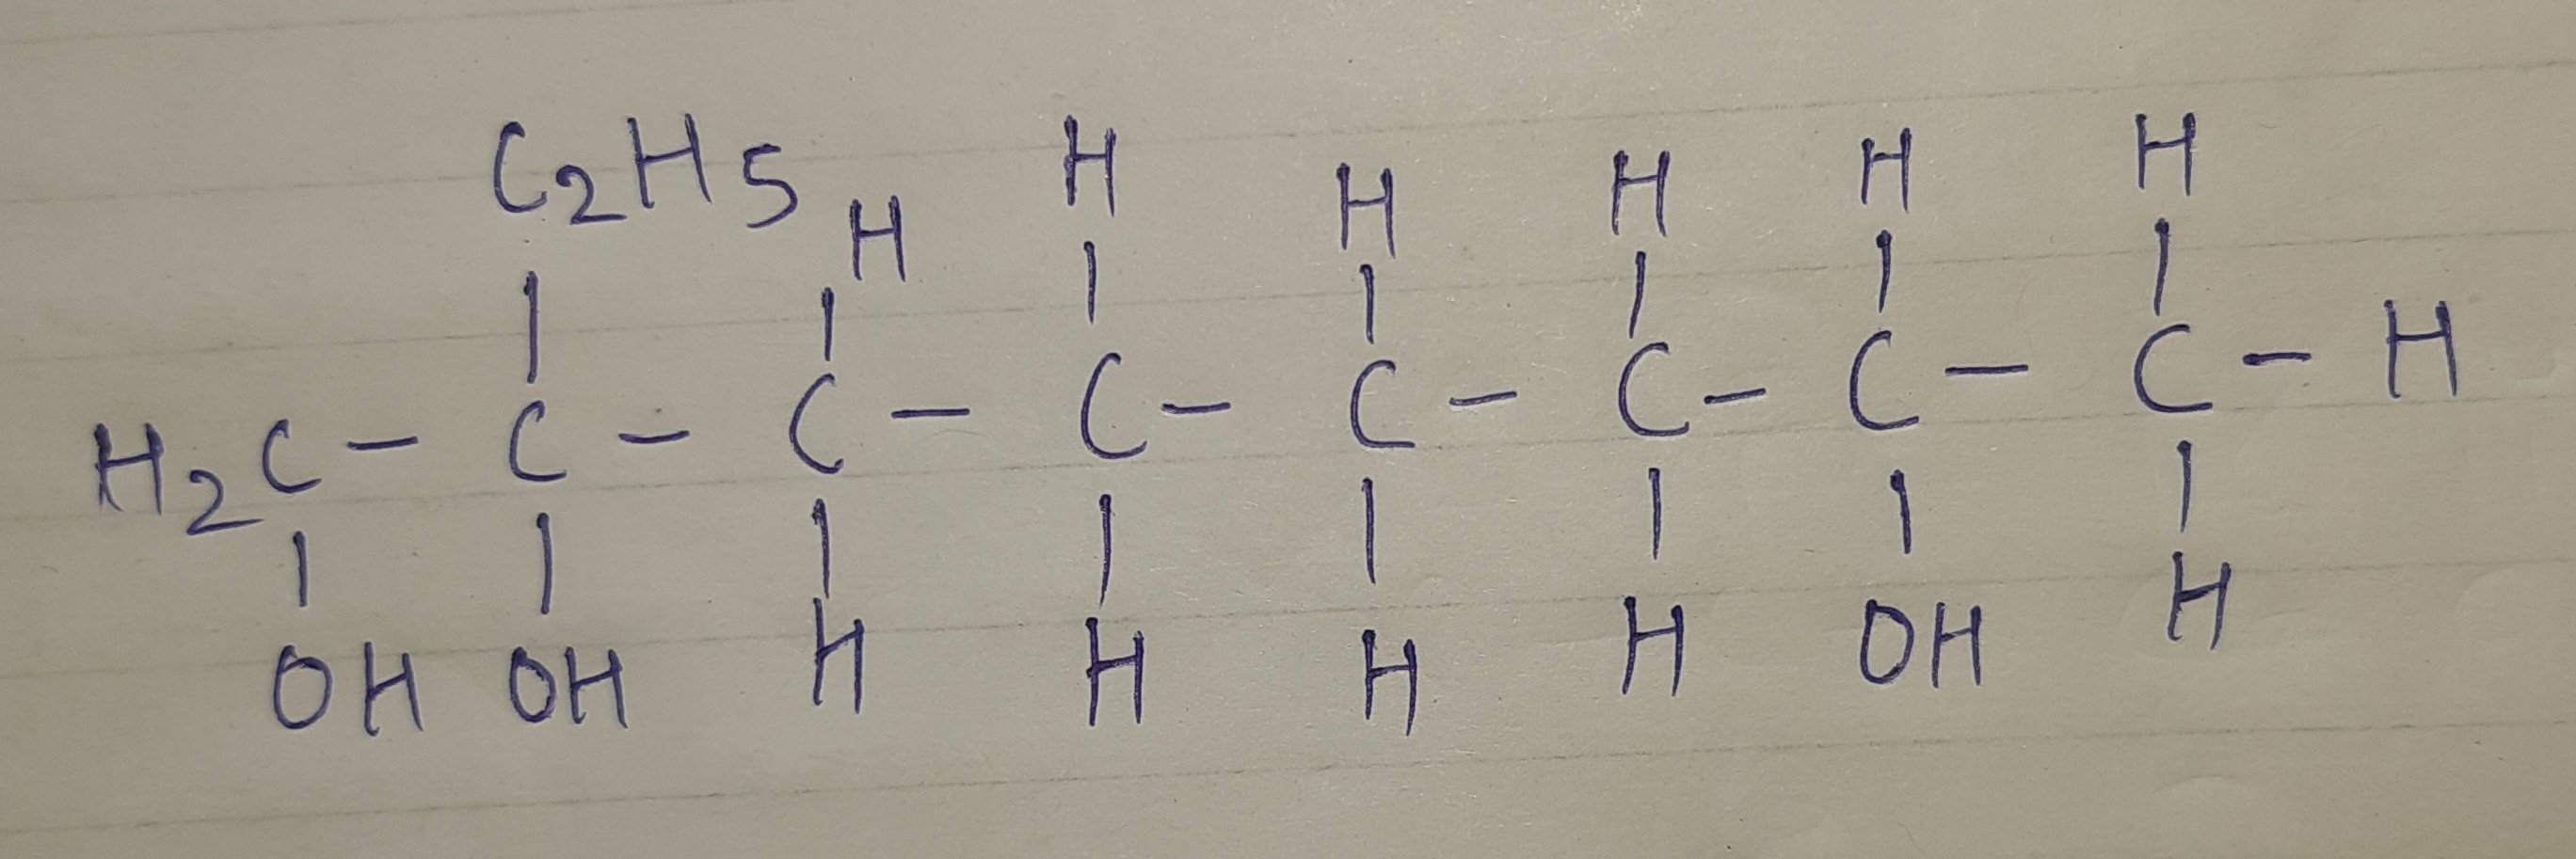 C2H5 H H H H H H
H2C - C - C - C - C - C - C - C - H
OH OH H H H H OH H